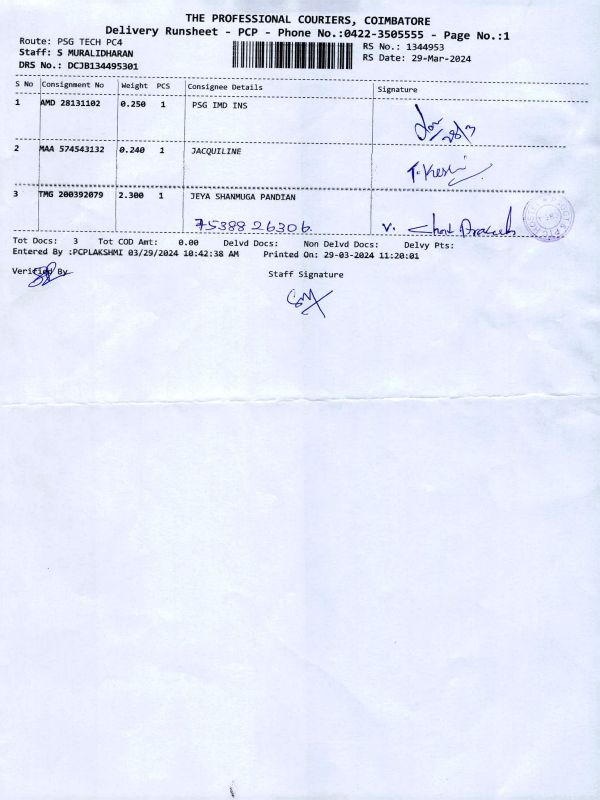 THE PROFESSIONAL COURIERS, COIMBATORE
Delivery Runsheet - PCP - Phone No.:0422-3505555 - Page No.:1
Route: PSG TECH PC4
RS No.: 1344953
Staff: S MURALIDHARAN
RS Date: 29-Mar-2024
DRS No.: DCJB134495301
S No Consignment No Weight PCS Consignee Details Signature
1 AMD 28131102 0.250 1 PSG IMD INS
28/3
2 MAA 574543132 0.240 1 JACQUILINE
3 TMG 200392079 2.300 1 JEYA SHANMUGA PANDIAN
75388 26306. V.
Tot Docs: 3 Tot COD Amt: 0.00 Delvd Docs: Non Delvd Docs: Delvy Pts:
Entered By :PCPLAKSHMI 03/29/2024 10:42:38 AM Printed On: 29-03-2024 11:20:01
Verified By
Staff Signature